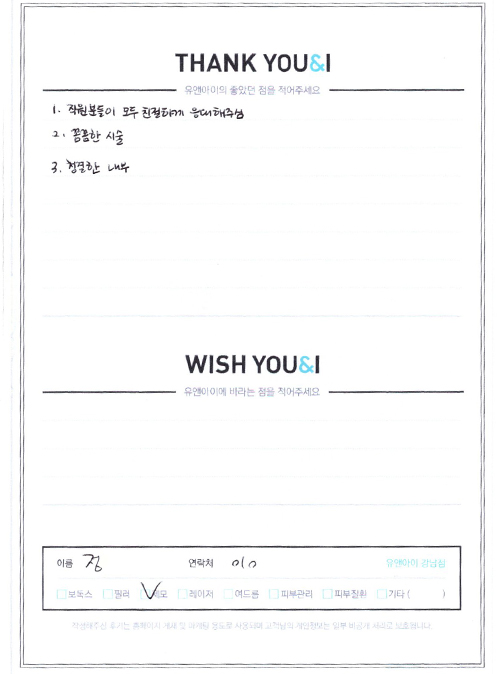 THANK YOU&I
유앤아이의 좋았던 점을 적어주세요
1. 직원분들이 모두 친절하게 응대해주심
2. 꼼꼼한 시술
3. 청결한 내부
WISH YOU&I
유앤아이에 바라는 점을 적어주세요
이름 정 연락처 010 유앤아이 강남점
보톡스 필러 제모 레이저 여드름 피부관리 피부질환 기타 ( )
작성해주신 후기는 홈페이지 게재 및 마케팅 용도로 사용되며 고객님의 개인정보는 일부 비공개 처리로 보호됩니다.